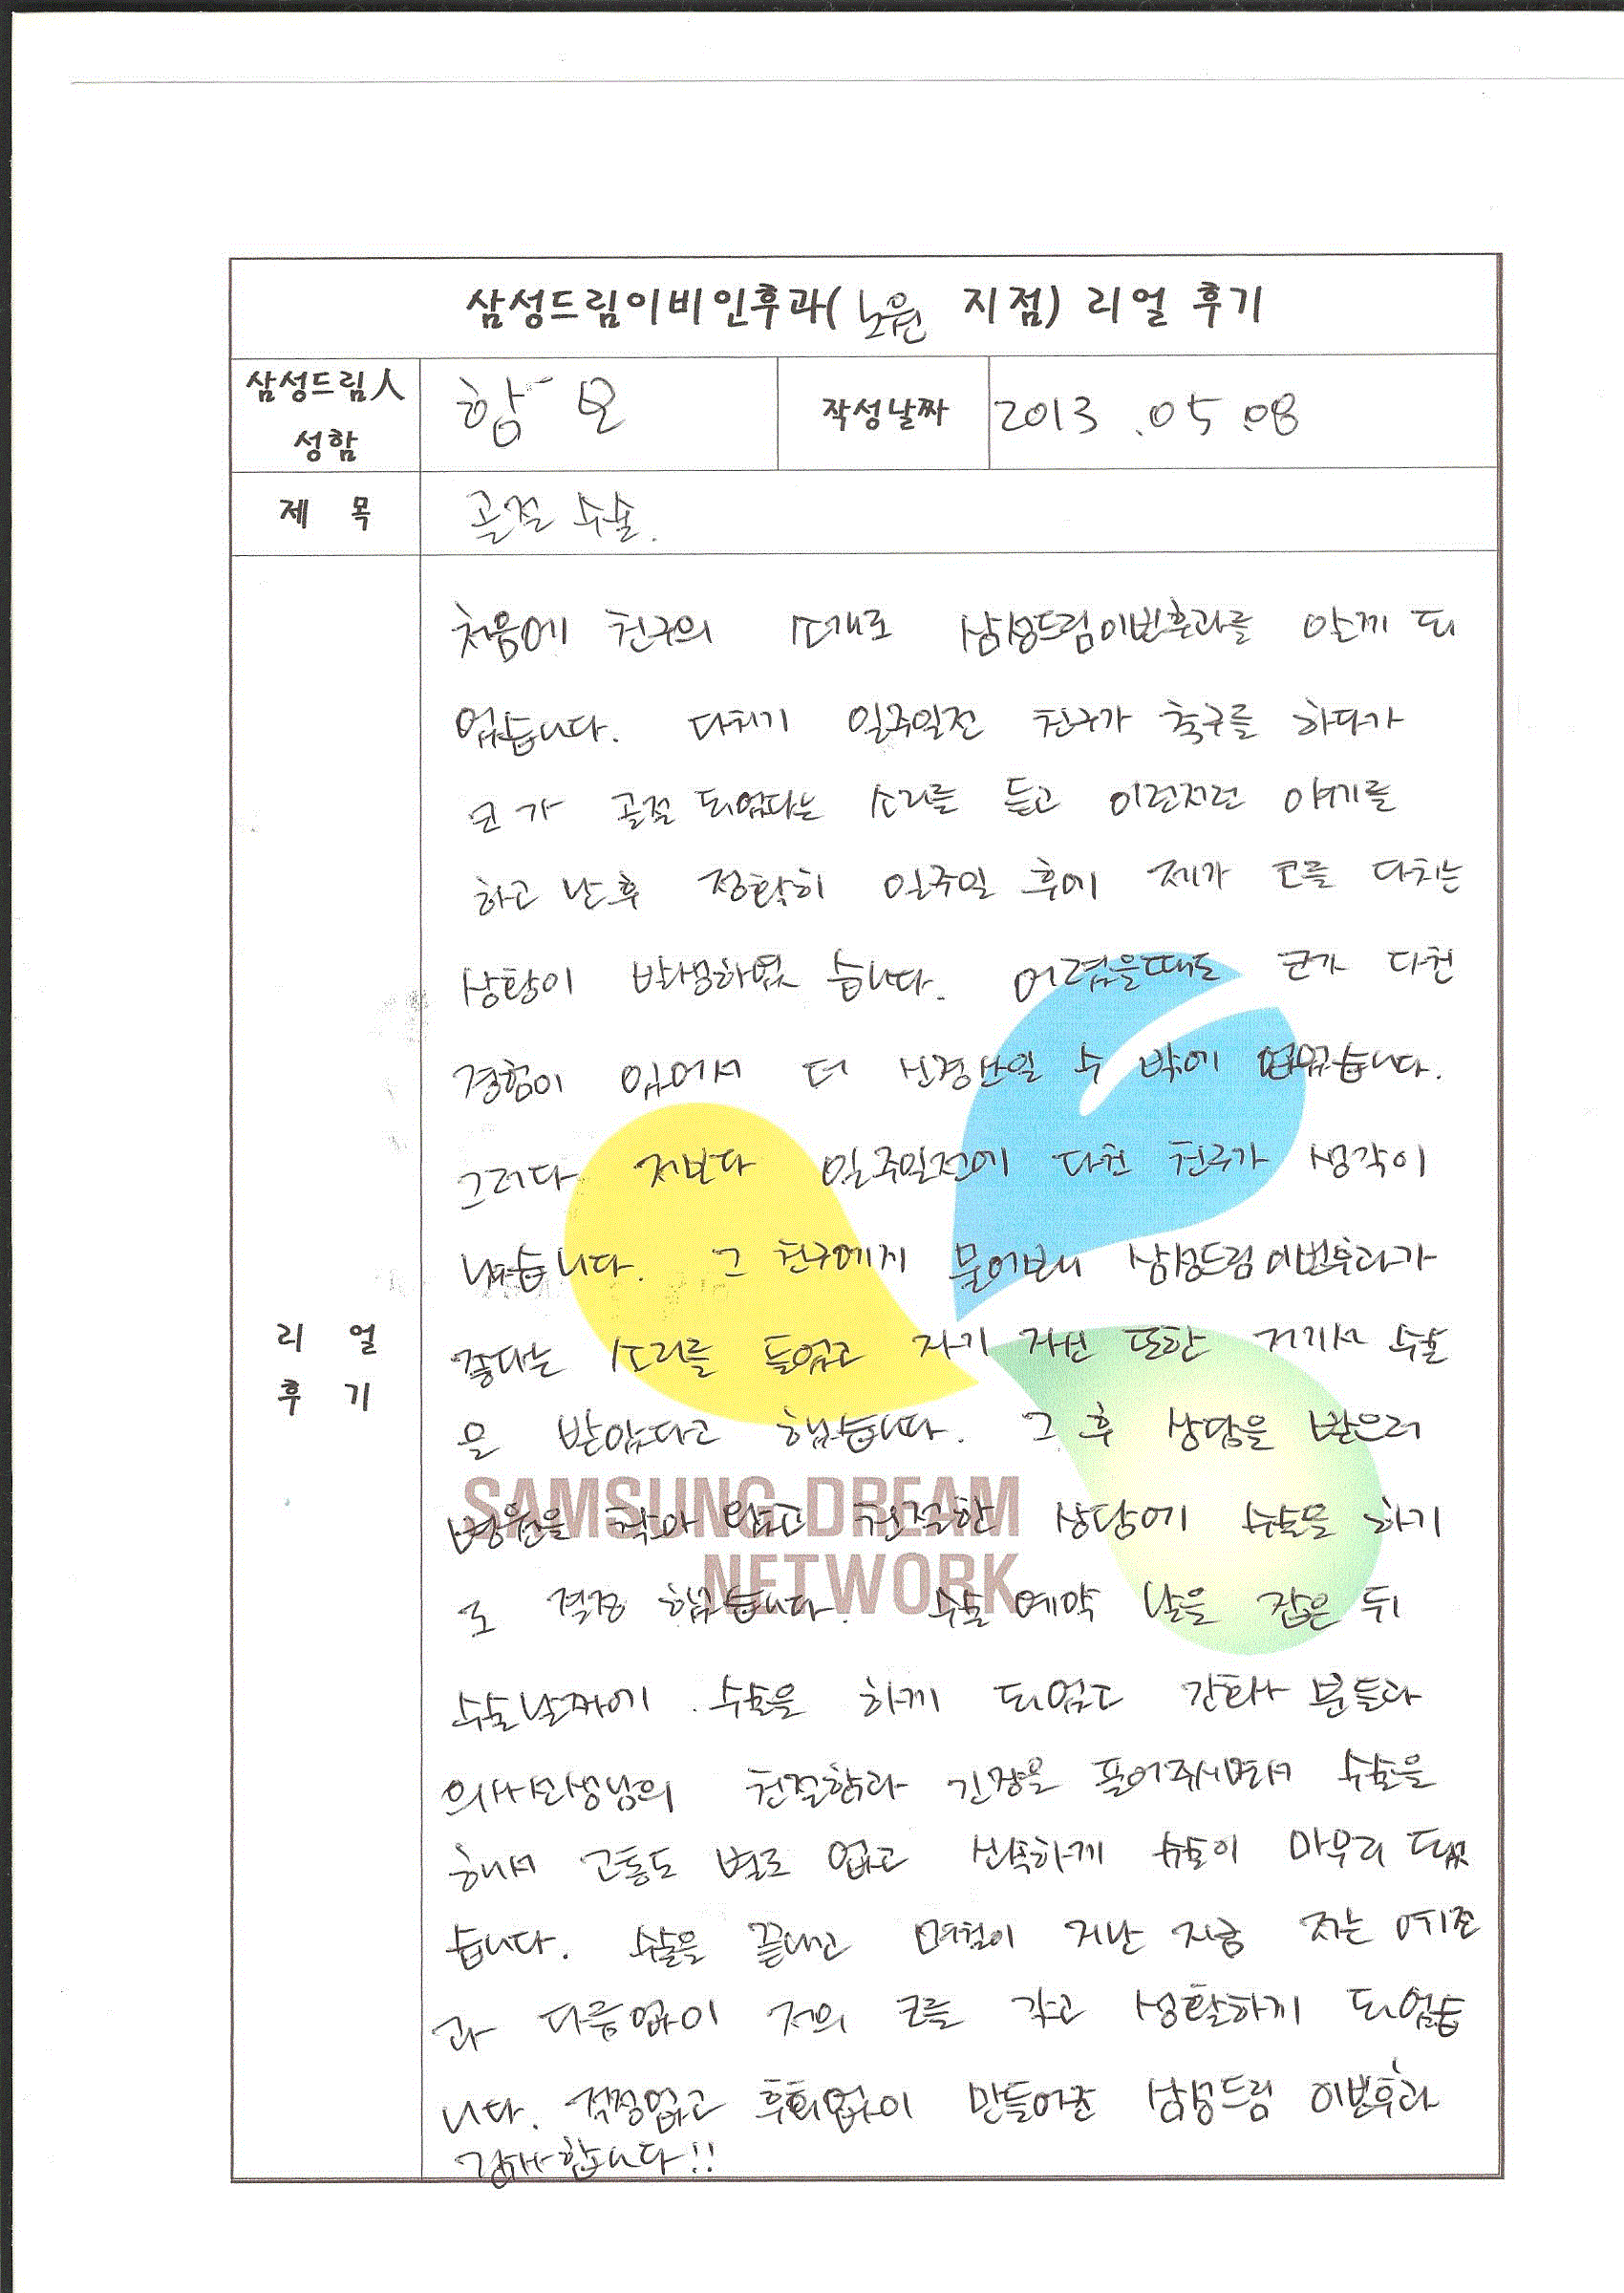 삼성드림이비인후과(노원 지점) 리얼 후기
삼성드림人
성함
함 모
작성날짜
2013.05.08
제 목
골절 수술.
리 얼
후 기
처음에 친구의 소개로 삼성드림이빈후과를 알게 되
었습니다. 다치기 일주일전 친구가 축구를 하다가
코가 골절 되었다는 소리를 듣고 이런저런 얘기를
하고 난후 정확히 일주일 후에 제가 코를 다치는
상황이 발생하였습니다. 어렸을때도 코가 다친
경험이 있어서 더 신경쓰일 수 밖에 없었습니다.
그러다 저보다 일주일전에 다친 친구가 생각이
났습니다. 그 친구에게 물어보니 삼성드림이빈후과가
좋다는 소리를 들었고 자기 자신 또한 저기서 수술
을 받았다고 했습니다. 그 후 상담을 받으러
병원을 찾아 왔고 친절한 상담에 수술을 하기
로 결정 했습니다. 수술 예약 날을 잡은 뒤
수술날짜에 수술을 하게 되었고 간호사 분들과
의사선생님의 친절함과 긴장을 풀어주시면서 수술을
해서 고통도 별로 없고 신속하게 수술이 마무리 됐
습니다. 수술을 끝내고 며칠이 지난 지금 저는 예전
과 다름없이 저의 코를 갖고 생활하게 되었습
니다. 걱정없고 후회없이 만들어준 삼성드림 이빈후과
감사합니다!!
SAMSUNG DREAM
NETWORK